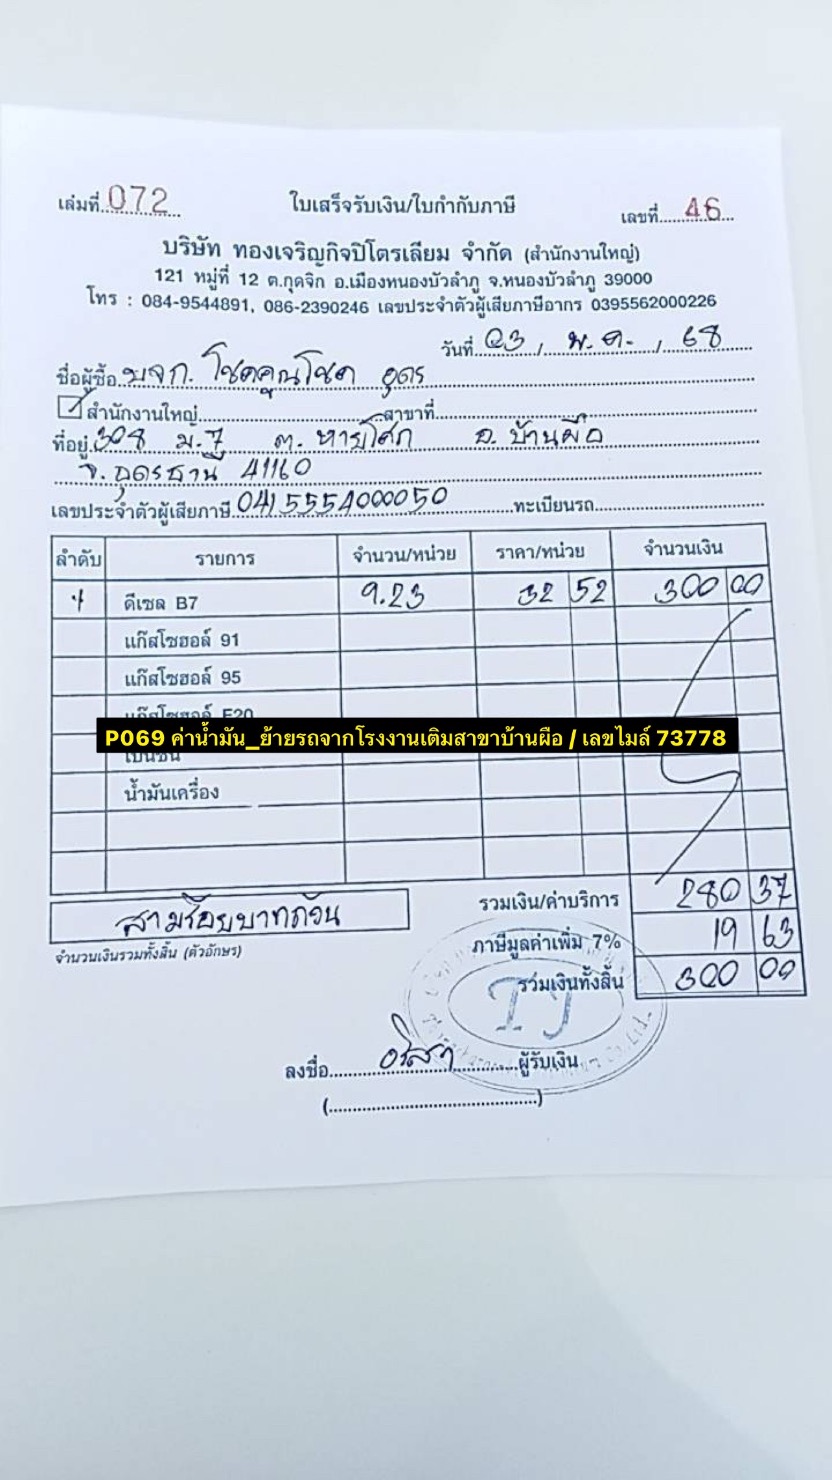 เล่มที่ 072
ใบเสร็จรับเงิน/ใบกำกับภาษี
เลขที่ 46
บริษัท ทองเจริญกิจปิโตรเลียม จำกัด (สำนักงานใหญ่)
121 หมู่ที่ 12 ต.กุดจิก อ.เมืองหนองบัวลำภู จ.หนองบัวลำภู 39000
โทร : 084-9544891, 086-2390246 เลขประจำตัวผู้เสียภาษีอากร 0395562000226
วันที่ 23, พ.ค., 68
ชื่อผู้ซื้อ บจก. โชคคูณโชค อุดร
สำนักงานใหญ่ สาขาที่
ที่อยู่ 308 ม.7 ต. หายโศก อ. บ้านผือ
จ. อุดรธานี 41160
เลขประจำตัวผู้เสียภาษี 0415554000050 ทะเบียนรถ
ลำดับ รายการ จำนวน/หน่วย ราคา/หน่วย จำนวนเงิน
ดีเซล B7 9.23 32 52 300 00
แก๊สโซฮอล์ 91
แก๊สโซฮอล์ 95
แก๊สโซฮอล์ E20
P069 ค่าน้ำมัน_ย้ายรถจากโรงงานเติมสาขาบ้านผือ / เลขไมล์ 73778
เบนซิน
น้ำมันเครื่อง
รวมเงิน/ค่าบริการ 280 37
สามร้อยบาทถ้วน
ภาษีมูลค่าเพิ่ม 7% 19 63
จำนวนเงินรวมทั้งสิ้น (ตัวอักษร)
รวมเงินทั้งสิ้น 300 00
TJ
ลงชื่อ ผู้รับเงิน
(                    )